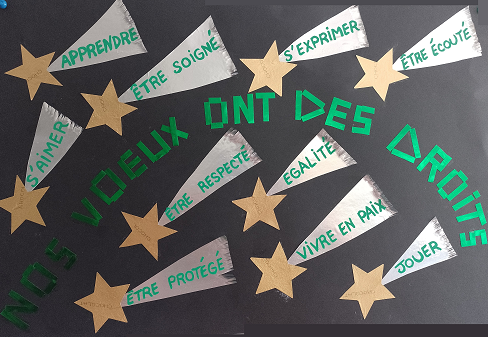 APPRENDRE
ÊTRE SOIGNÉ
S'EXPRIMER
ÊTRE ÉCOUTÉ
S'AIMER
NOS VOEUX ONT DES DROITS
ÊTRE RESPECTÉ
EGALITÉ
VIVRE EN PAIX
ÊTRE PROTÉGÉ
JOUER